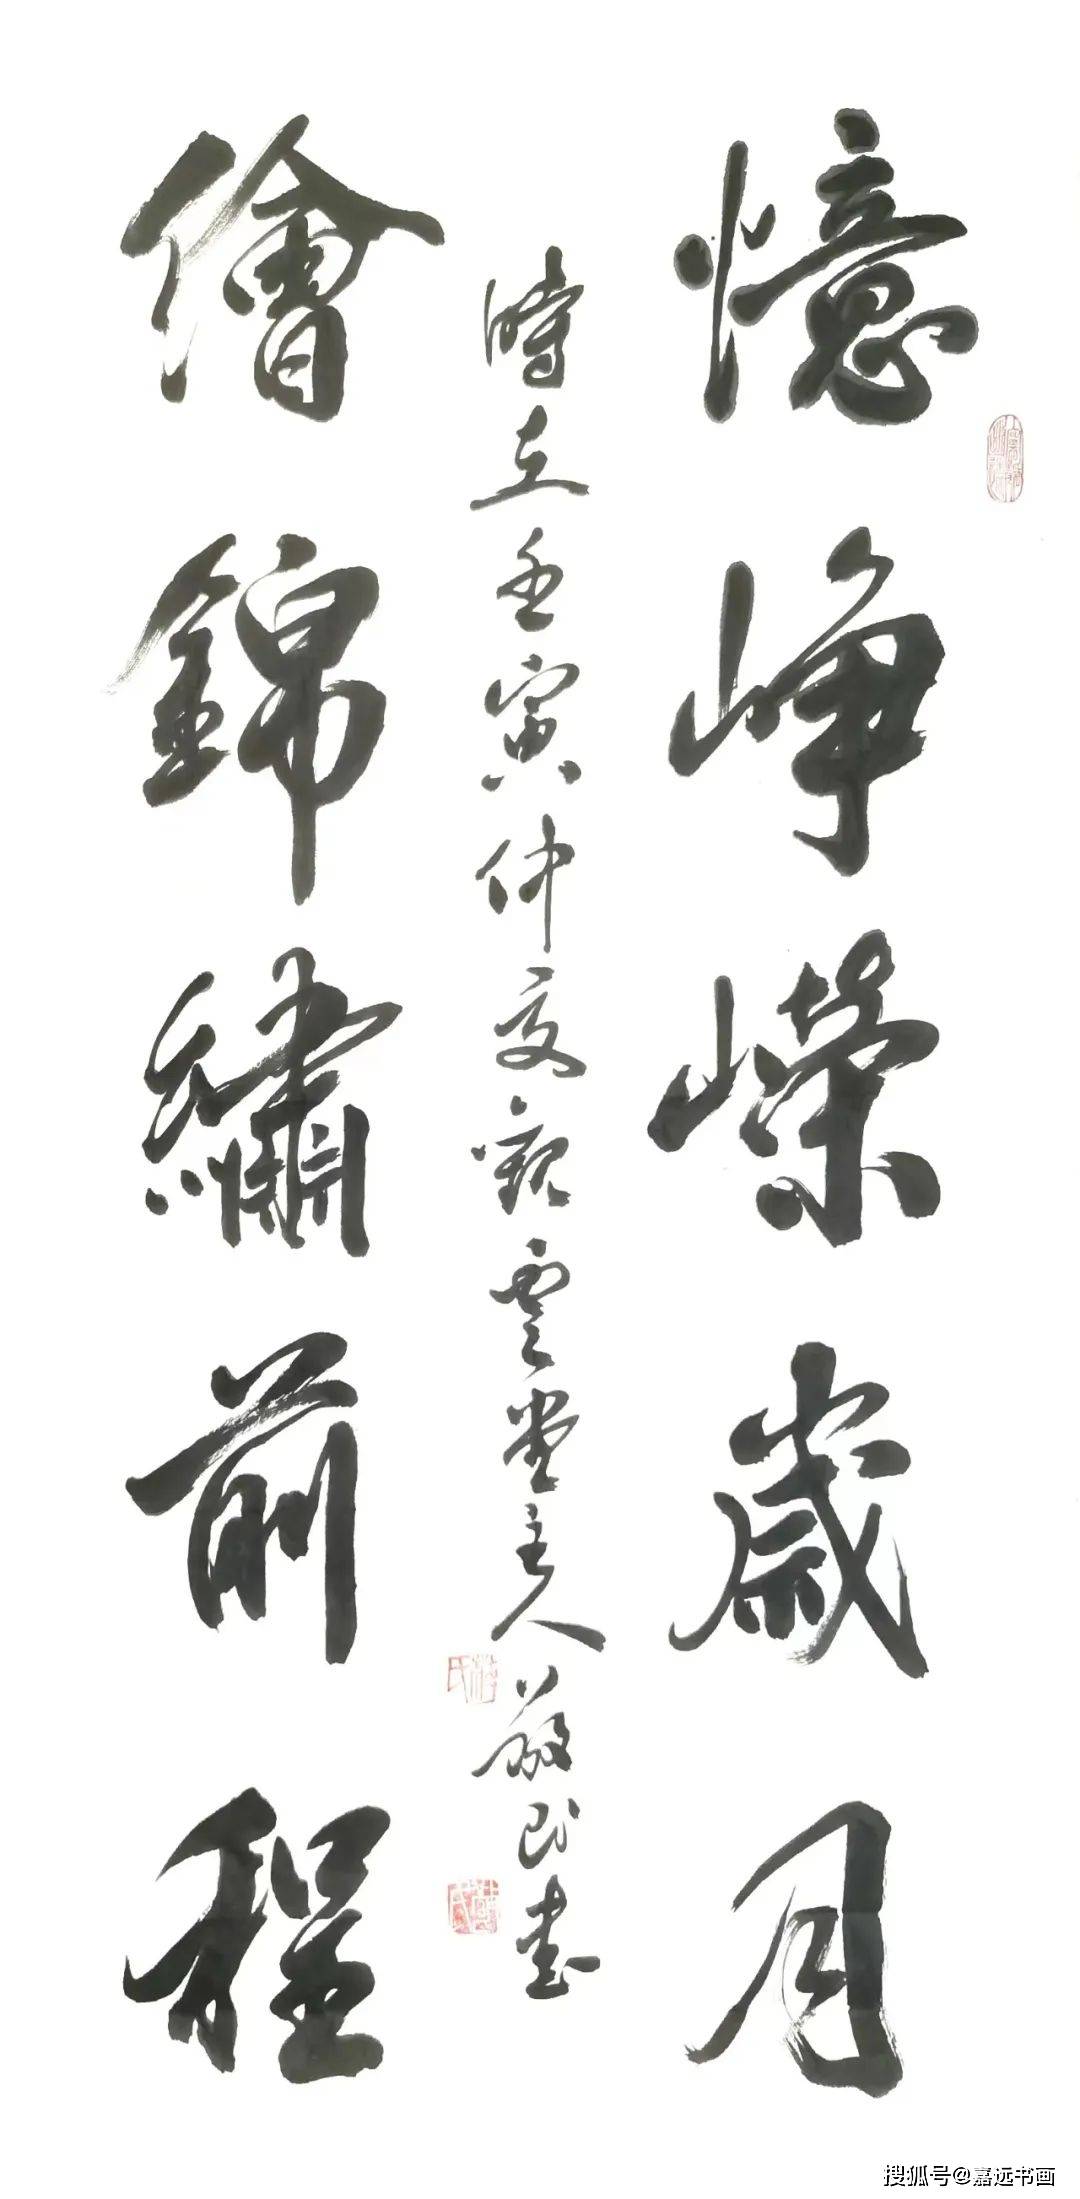 憶崢嶸歲月
時在壬寅仲夏觀雲堂主人敬民書
繪錦繡前程
搜狐号@嘉远书画